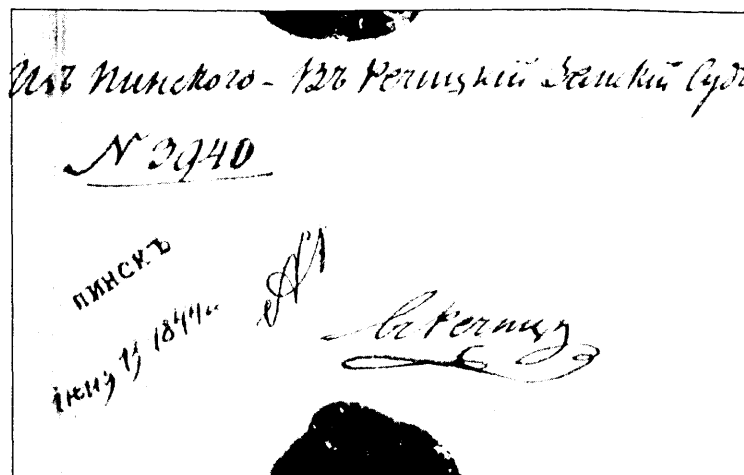 Изъ Пинского - Въ Речицкій Земскій Судъ
N 3940
ПИНСКЪ
1844
Въ Речицу